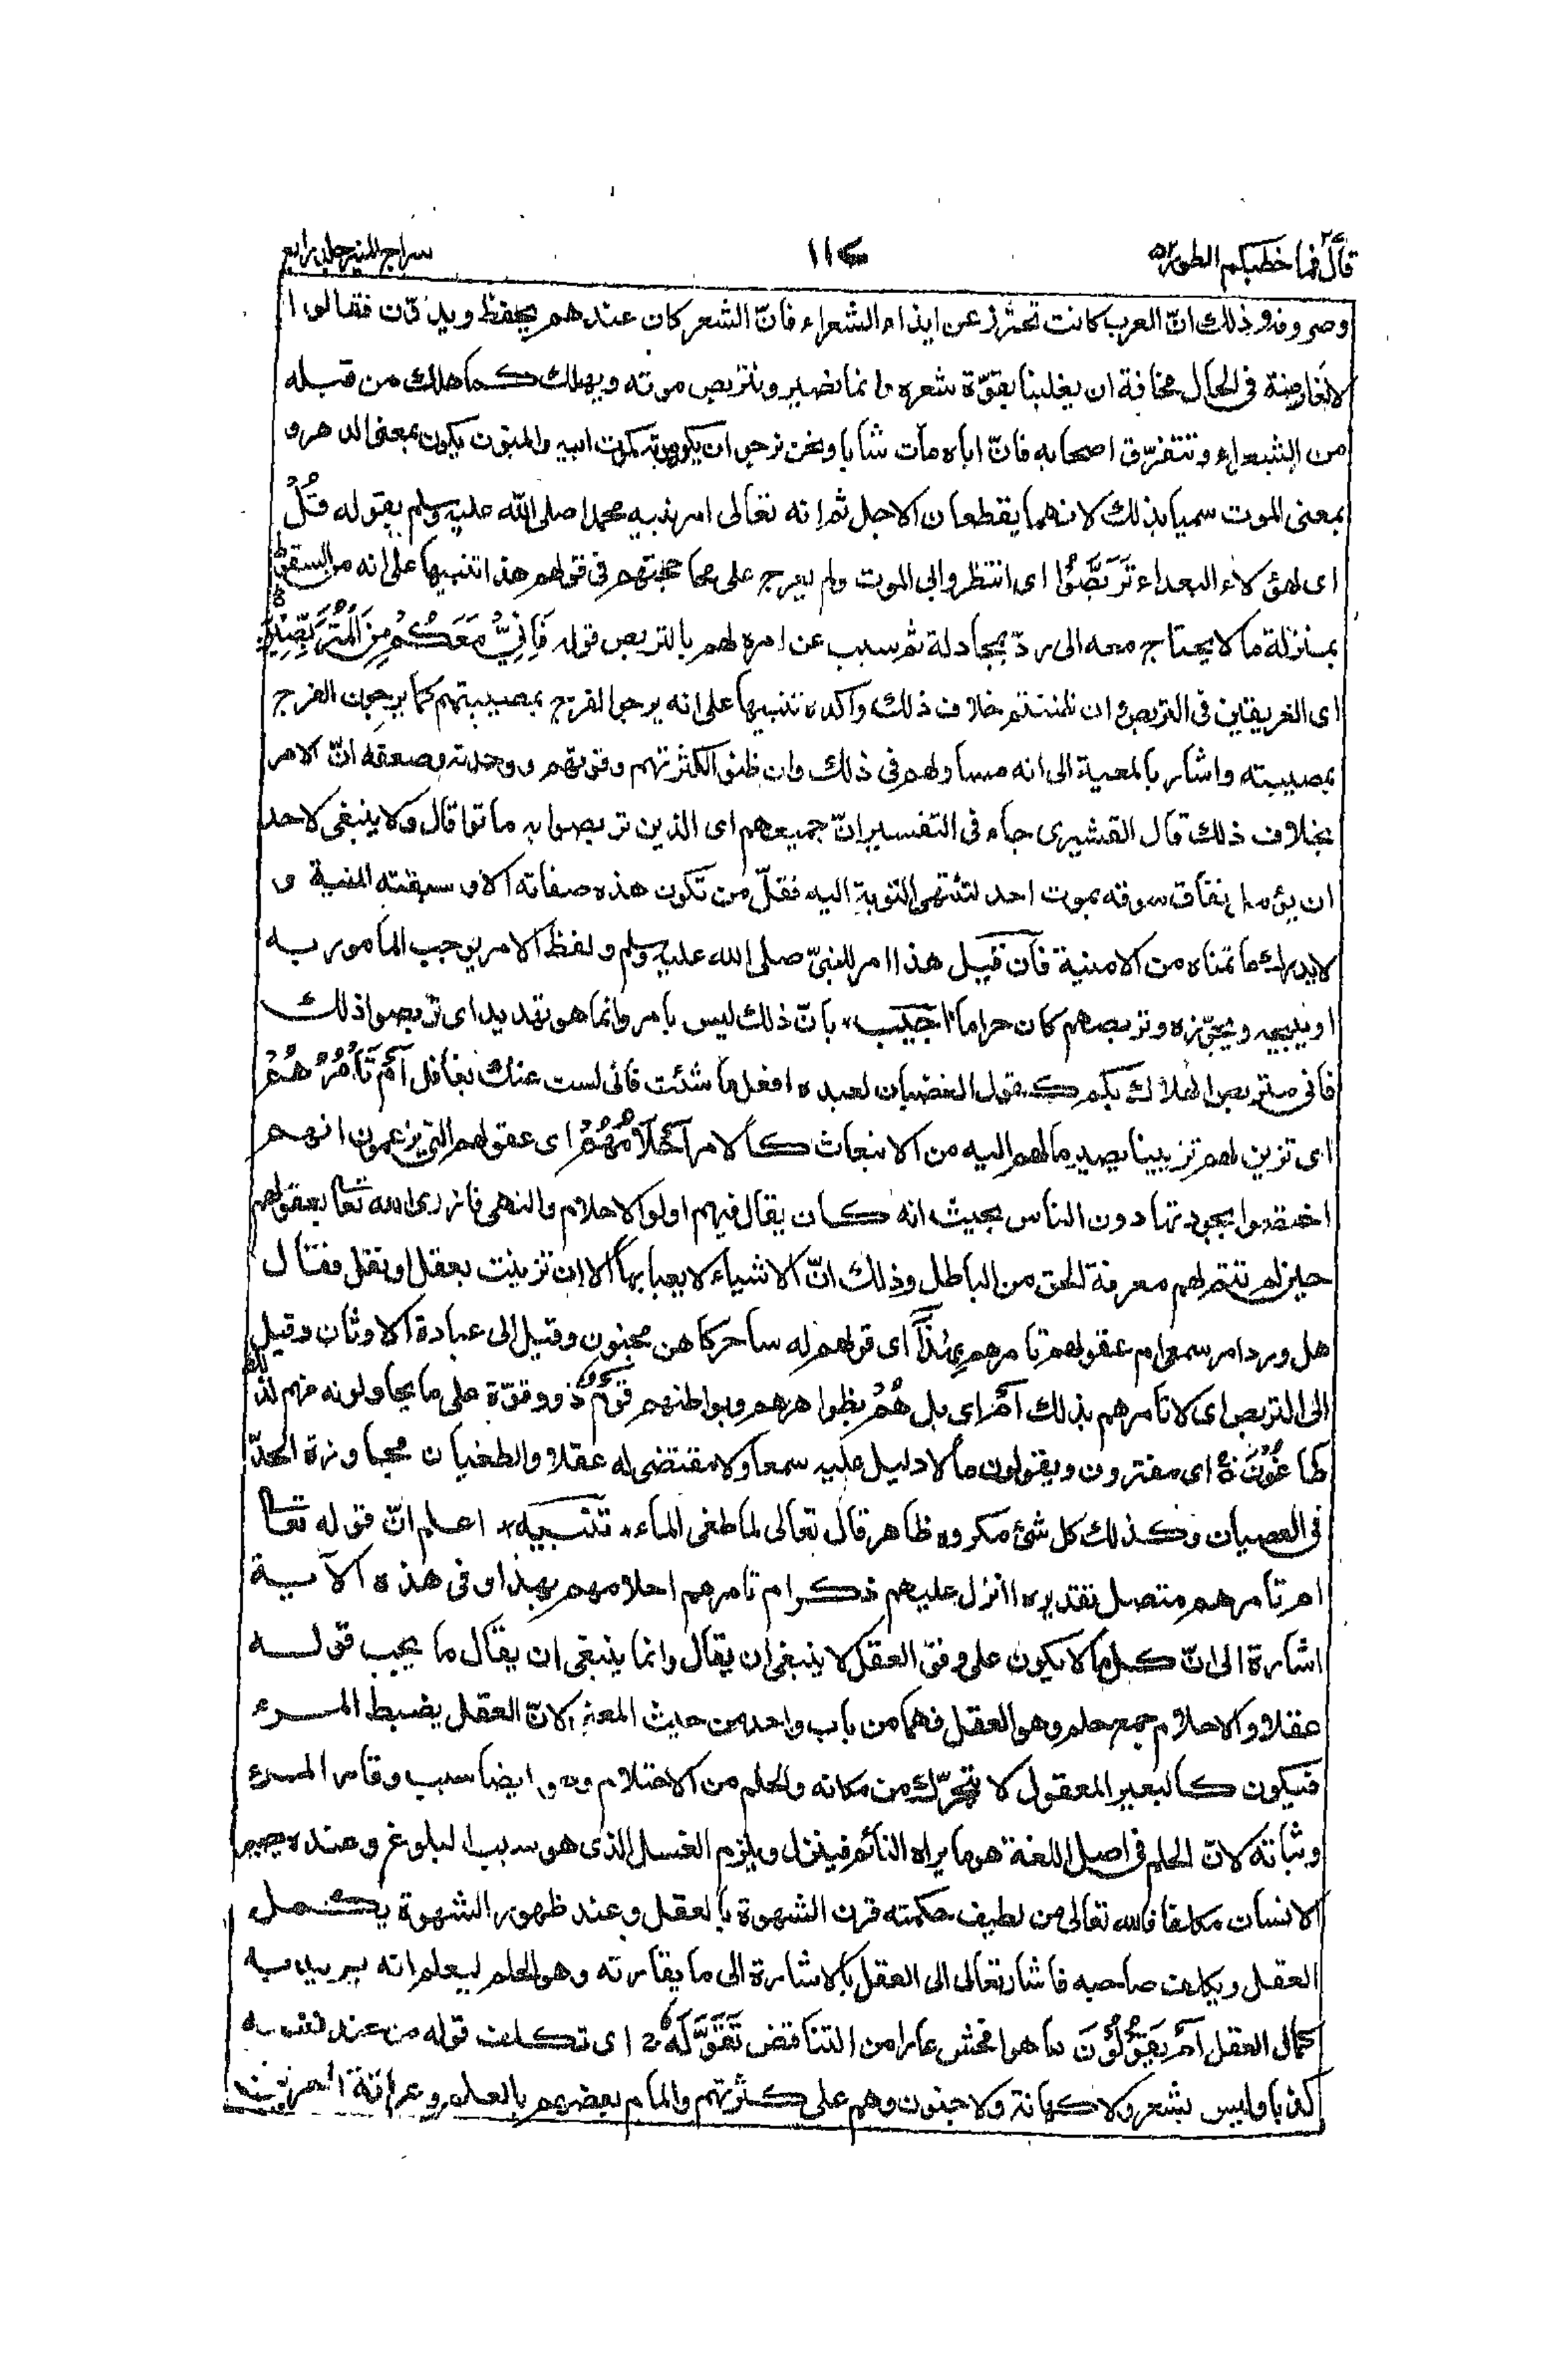 قال فما خطبكم الطور ٥٢
١١٧
سراج المنير جلد رابع
وصروفه وذلك انّ العرب كانت تحترز عن ايذاء الشعراء فانّ الشعر كان عندهم يحفظ ويدوّن فقالوا
لا نعارضه فى الحال مخافة ان يغلبنا بقوّة شعره وانما نصبر ونتربص موته ويهلك كما هلك من قبله
من الشعراء وتتفرّق اصحابه فانّ اباه مات شابا ونحن نرجو ان يكون موته كموت ابيه والمنون يكون بمعنى الدهر و
بمعنى الموت سميا بذلك لانهما يقطعان الاجل ثم انه تعالى امر نبيه محمدا صلى الله عليه وسلم بقوله قُلْ
اى لهؤلاء البعداء تَرَبَّصُوْا اى انتظروا بى الموت ولم يعرج على محاججتهم فى قولهم هذا تنبيها على انه من السقوط
بمنزلة ما لا يحتاج معه الى ردّ بمجادلة ثم سبب عن امره لهم بالتربص قوله فَاِنِّيْ مَعَكُمْ مِنَ الْمُتَرَبِّصِيْنَ
اى الفريقين فى التربص وان ظننتم خلاف ذلك واكده تنبيها على انه يرجو الفرج بمصيبتهم كما يرجون الفرج
بمصيبته واشار بالمعية الى انه مساو لهم فى ذلك وان ظنوا لكثرتهم وقوتهم ووحدته وضعفه انّ الامر
بخلاف ذلك قال القشيرى جاء فى التفسير انّ جميعهم اى الذين تربصوا به ماتوا قال ولا ينبغى لاحد
ان يؤمل نفاق سوقه بموت احد لتنتهى النوبة اليه فقلّ من تكون هذه صفاته الا وسبقته المنية و
لا يدرك ما تمناه من الامنية فان قيل هذا امر للنبىّ صلى الله عليه وسلم ولفظ الامر يوجب المأمور به
او يبيحه ويجوّزه وتربصهم كان حراما اجيب بانّ ذلك ليس بامر وانما هو تهديد اى تربصوا ذلك
فانى متربص الهلاك بكم كقول الغضبان لعبده افعل ما شئت فانى لست عنك بغافل اَمْ تَأْمُرُهُمْ
اى تزين لهم تزيينا يصير ما لهم اليه من الانبعاث كالامر اَحْلَامُهُمْ اى عقولهم التى يزعمون انهم
اختصوا بجودتها دون الناس بحيث انه كان يقال فيهم اولو الاحلام والنهى فازرى الله تعا بعقولهم
حين لم تثمر لهم معرفة الحق من الباطل وذلك انّ الاشياء لا يعبا بها الا ان تزينت بعقل او نقل فقال
هل ورد امر سمعى ام عقولهم تامرهم بِهٰذَا اى قولهم له ساحر كاهن مجنون وقيل الى عبادة الاوثان وقيل
الى التربص اى لا تأمرهم بذلك اَمْ اى بل هُمْ بظواهرهم وبواطنهم قَوْمٌ ذوو قوّة على ما يحاولونه فهم لذلك
طَاغُوْنَ اى مفترون ويقولون ما لا دليل عليه سمعا ولا مقتضى له عقلا والطغيان مجاوزة الحدّ
فى العصيان وكذلك كل شئ مكروه ظاهر قال تعالى لما طغى الماء تنبيه اعلم انّ قوله تعا
ام تأمرهم متصل تقديره اانزل عليهم ذكر ام تامرهم احلامهم بهذا وفى هذه الآية
اشارة الى انّ كل ما لا يكون على وفق العقل لا ينبغى ان يقال وانما ينبغى ان يقال ما يجب قوله
عقلا والاحلام جمع حلم وهو العقل فهما من باب واحد من حيث المعنى لانّ العقل يضبط المرء
فيكون كالبعير المعقول لا يتحرّك من مكانه والحلم من الاحتلام وهو ايضا سبب وقار المرء
وثباته لانّ الحلم فى اصل اللغة هو ما يراه النائم فينزل ويلزم الغسل الذى هو سبب البلوغ وعنده يصير
الانسان مكلفا فالله تعالى من لطيف حكمته قرن الشهوة بالعقل وعند ظهور الشهوة يكمل
العقل ويكلف صاحبه فاشار تعالى الى العقل بالاشارة الى ما يقارنه وهو الحلم ليعلم انه يريد به
كمال العقل اَمْ يَقُوْلُوْنَ ما هو افحش عارا من التناقض تَقَوَّلَهٗ اى تكلف قوله من عند نفسه
كذبا وليس بشعر ولا كهانة ولا جنون وهم على كثرتهم والمام بعضهم بالعلم وعراقة